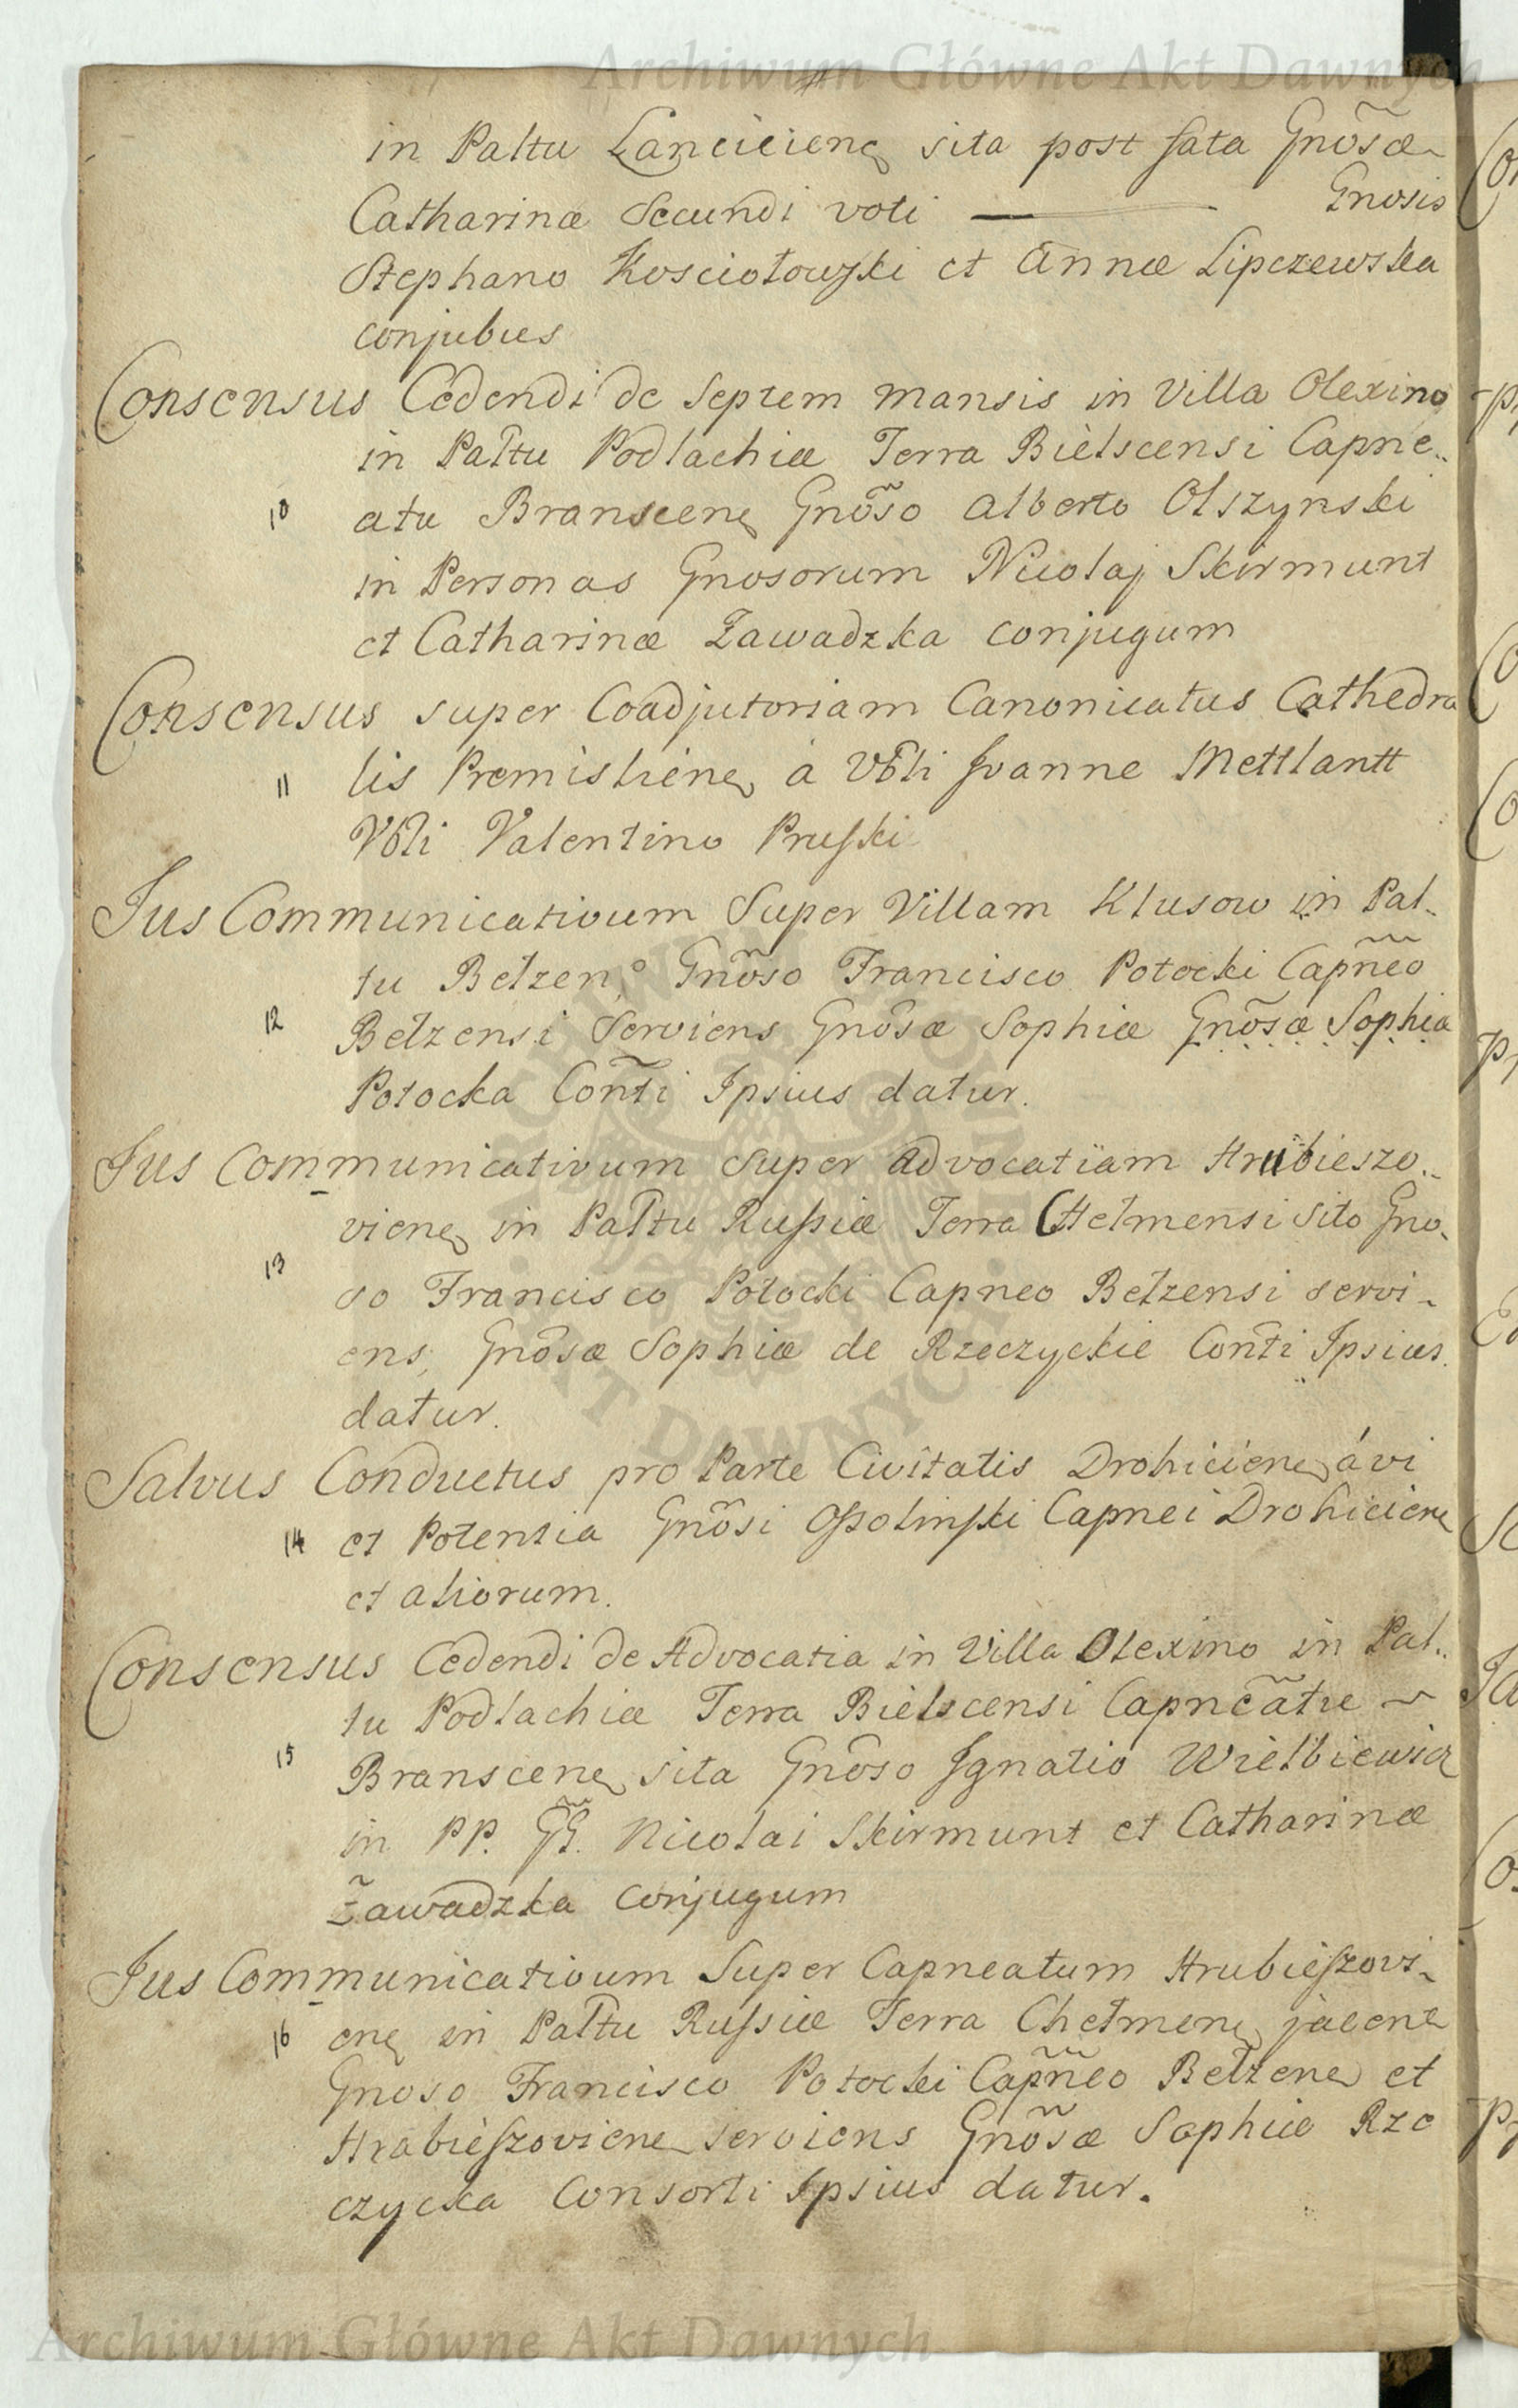 Archiwum Główne Akt Dawnych
in Paltu Lancicien̨ sita post fata Gnõsæ
Catharinæ Secundi voti — Gnosis
Stephano Kosciołowski et Annæ Lipczewska
conjubus
Consensus Cedendi de Septem mansis in Villa Olexino
in Paltu Podlachiæ Terra Bielscensi Capne..
10 atu Branscen̨ Gnõso Alberto Olszynski
in Personas Gnosorum Nicolaj Skirmunt
et Catharinæ Zawadzka conjugum
Consensus super Coadjutoriam Canonicatus Cathedra
11 lis Premislien̨ à Vbli Joanne Mettlantt
Vbli Valentino Pruski
Jus Communicativum Super Villam Klusow in Pal-
tu Bełzen: Gnõso Francisco Potocki Capñeo
12 Bełzensi Serviens Gnõsæ Sophiæ Gnõsæ Sophia
Potocka Conti Ipsius datur.
Jus Communicativum Super Advocatiam Hrubieszo-
vien̨ in Paltu Russiæ Terra Chełmensi sito Gno-
13 so Francisco Potocki Capneo Bełzensi servi-
ens, Gnõsæ Sophiæ de Rzeczyckie Conti Ipsius
datur.
Salvus Conductus pro Parte Civitatis Drohicien̨ á vi
14 et Potentia Gnõsi Ossolinski Capnei Drohicien̨
et aliorum.
Consensus Cedendi de Advocatia in Villa Olexino in Pal..
tu Podlachiæ Terra Bielscensi Capneãtu
15 Branscen̨ sita Gnõso Ignatio Wielbiewicz
in PP. GG̃. Nicolai Skirmunt et Catharinæ
Zawadzka Conjugum
Jus Communicativum Super Capneatum Hrubieszovi-
16 en̨ in Paltu Russiæ Terra Chełmen̨ jacen̨
Gnoso Francisco Potocki Capñeo Bełzen̨ et
Hrabieszovien̨ serviens Gnõsæ Sophiæ Rze
czycka Consorti Ipsius datur.
Archiwum Główne Akt Dawnych